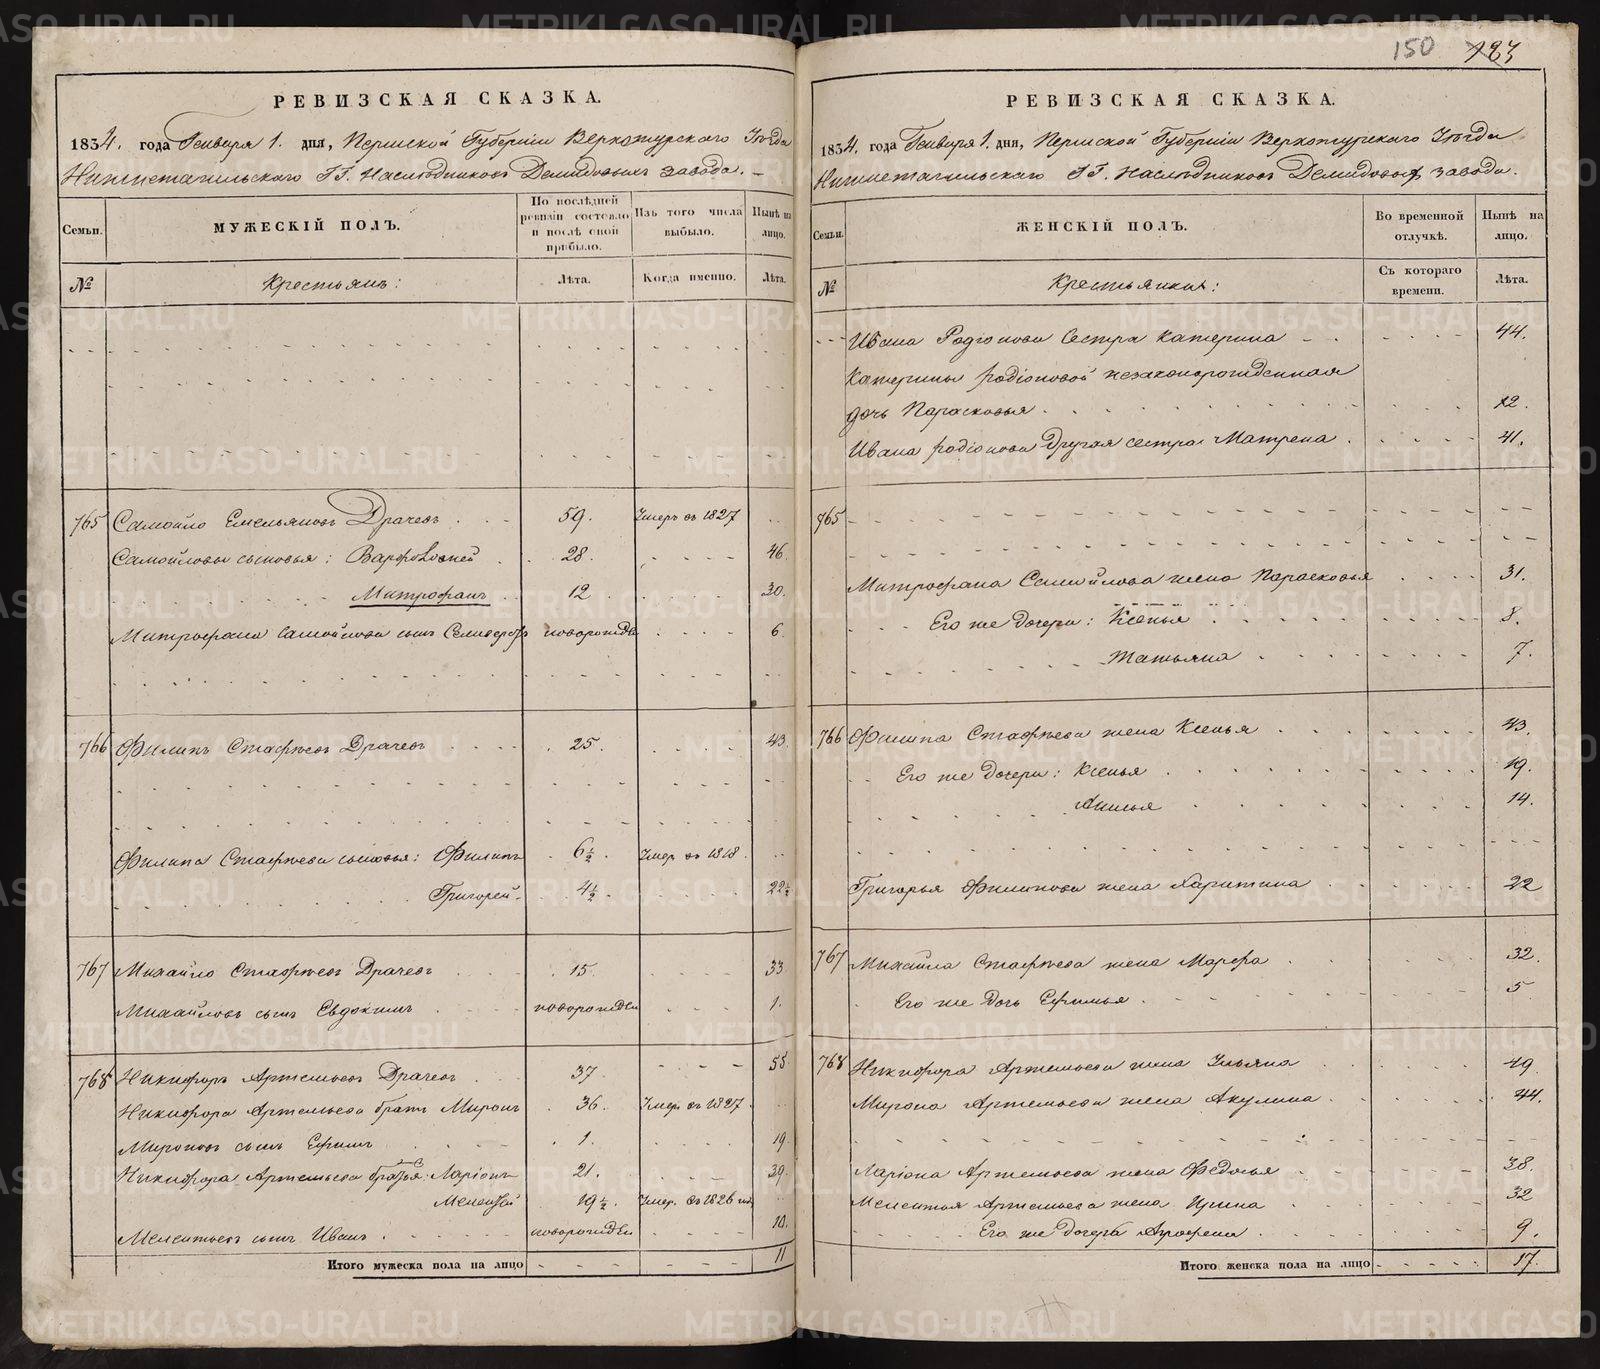 150 183
РЕВИЗСКАЯ СКАЗКА.
1834. года Генваря 1. дня, Пермской Губерніи Верхотурского Уѣзда
Нижнетагильского ГГ. Наслѣдниковъ Демидовыхъ завода. –
Семьи.
МУЖЕСКІЙ ПОЛЪ.
По послѣдней ревизіи состояло и послѣ оной прибыло.
Изъ того числа выбыло.
Нынѣ на лицо.
№
Крестьянъ:
Лѣта.
Когда именно.
Лѣта.
765 Самойло Емельяновъ Драчевъ 59. Умеръ въ 1827
Самойловы сыновья: Варфоломей 28. 46.
Митрофанъ 12 30.
Митрофана Самойлова сынъ Селиверстъ новорожде 6.
766 Филипъ Стафѣевъ Драчевъ 25. 43.
Филипа Стафѣева сыновья: Филипъ 6 1/2. Умер. въ 1818.
Григорей. 4 1/2. 22 1/2
767 Михайло Стафѣевъ Драчевъ 15. 33
Михайловъ сынъ Евдокимъ новорожден 1.
768 Никифоръ Артемьевъ Драчевъ 37. 55.
Никифора Артемьева братъ Миронъ 36. Умер. въ 1827.
Мироновъ сынъ Ефимъ 1. 19.
Никифора Артемьева братья: Ларіонъ 21. 39.
Мелентей 19 1/2. Умер. въ 1826
Мелентьевъ сынъ Иванъ новорожден 10.
Итого мужеска пола на лицо 11
РЕВИЗСКАЯ СКАЗКА.
1834. года Генваря 1. дня, Пермской Губерніи Верхотурского Уѣзда
Нижнетагильского ГГ. Наслѣдниковъ Демидовыхъ завода.
Семьи.
ЖЕНСКІЙ ПОЛЪ.
Во временной отлучкѣ.
Нынѣ на лицо.
№
Крестьянки:
Съ котораго времени.
Лѣта.
Ивана Родіонова Сестра Катерина 44.
Катерины Родіоновой незаконорожденная
дочь Парасковья 12.
Ивана Родіонова Другая сестра Матрена 41.
765
Митрофана Самойлова жена Парасковья 31.
Его же дочери: Ксенья 8.
Татьяна 7.
766 Филипа Стафѣева жена Ксенья 43.
Его же дочери: Ксенья 19.
Анисья 14.
Григорья Филипова жена Харитина 22
767 Михайла Стафѣева жена Марфа 32.
Его же дочь Ефимья 5
768 Никифора Артемьева жена Ульяна 49
Мирона Артемьева жена Акулина 44.
Ларіона Артемьева жена Федосья 38.
Мелентья Артемьева жена Ирина 32
Его же дочерь Аграфена 9.
Итого женска пола на лицо 17.
METRIKI.GASO-URAL.RU